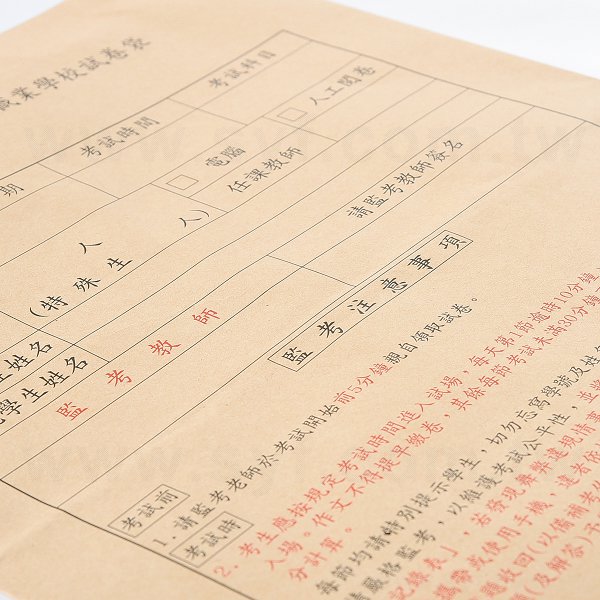 職業學校試卷袋
考試科目
考試時間
人工閱卷
期
電腦
任課教師
人
人)
(特殊生
請監考教師簽名
姓名
學生姓名
監考教師
監考注意事項
考試前
1. 請監考老師於考試開始前5分鐘親自領取試卷。
考試時
2. 考生應按規定考試時間進入試場，每天第1節逾時10分鐘
入場。作文不得提早繳卷，其餘每節考試未滿30分鐘
分計算。
每節均請特別提示學生，切勿忘寫學號及姓
請嚴格監考，以維護考試公平性，並
記錄表」，若發現舞弊違規情
攜帶或使用手機，違者
題收回(以備補考
(及解答)